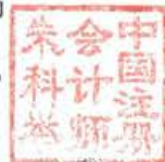 中国注册
会计师
朱科